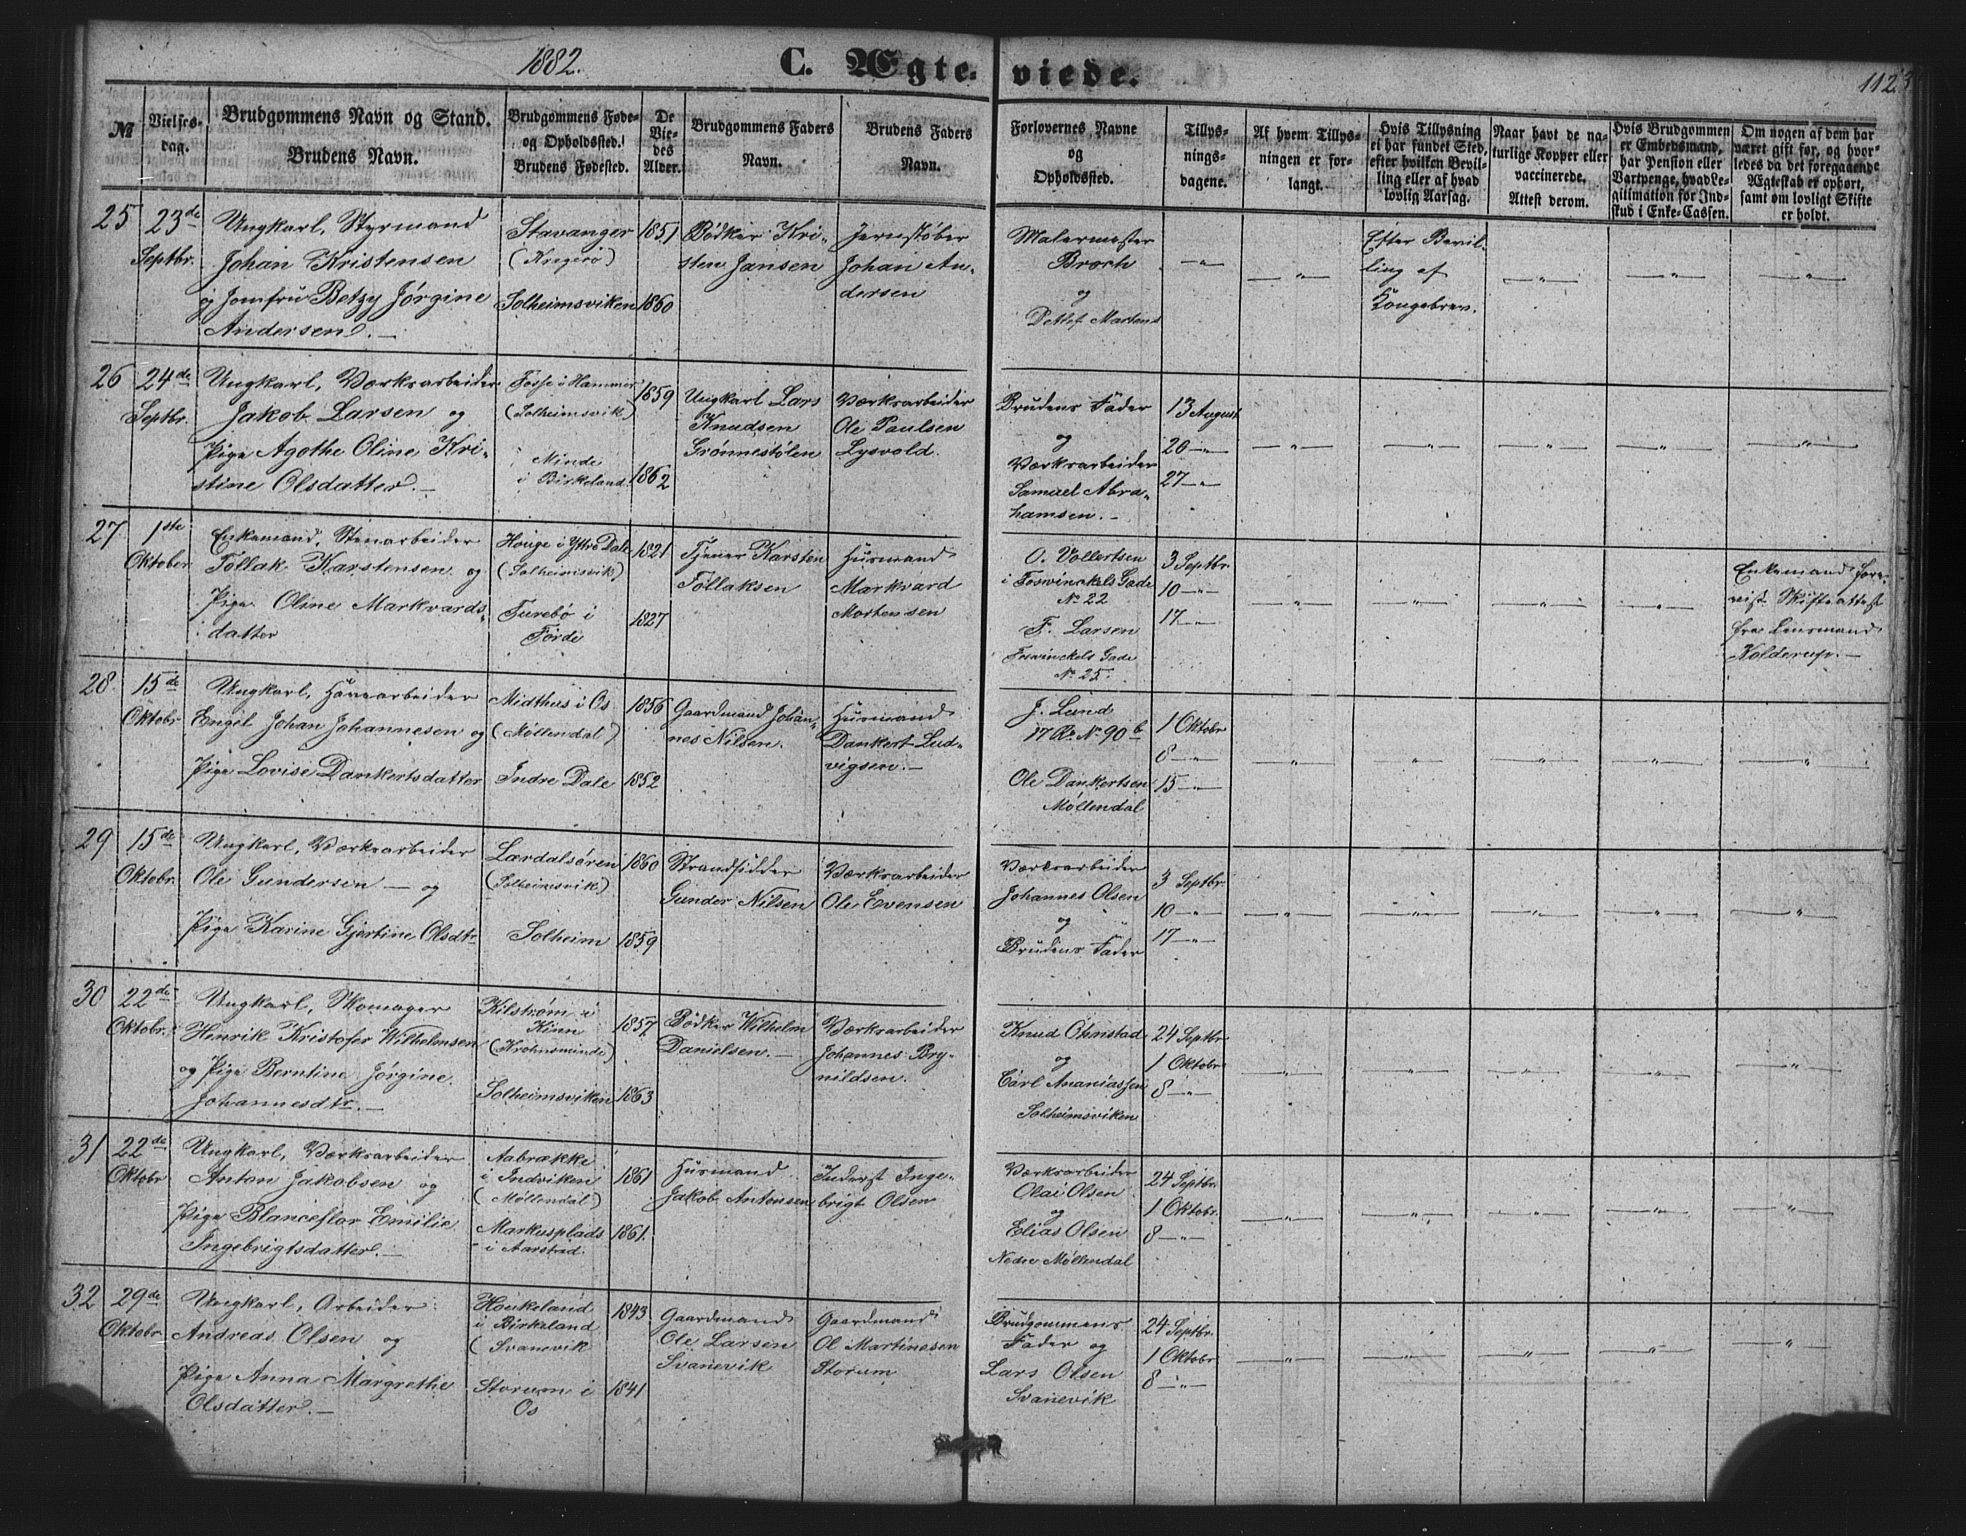 1882.
C. Ægte- viede.
112
№
Vielses-
dag.
Brudgommens Navn og Stand.
Brudens Navn.
Brudgommens Føde-
og Opholdssted.
Brudens Fødested.
De
Vie-
des
Alder.
Brudgommens Faders
Navn.
Brudens Faders
Navn.
Forlovernes Navne
og
Opholdssted.
Tillys-
nings-
dagene.
Af hvem Tillys-
ningen er for-
langt.
Hvis Tillysning
ei har fundet Sted,
efter hvilken Bevil-
ling eller af hvad
lovlig Aarsag.
Naar havt de na-
turlige Kopper eller
vaccinerede.
Attest derom.
Hvis Brudgommen
er Embedsmand,
har Pension eller
Vartpenge, hvad Le-
gitimation for Ind-
skud i Enke-Cassen.
Om nogen af dem har
været gift før, og hvor-
ledes da det foregaaende
Ægteskab er ophørt,
samt om lovligt Skifte
er holdt.
25
23de
Septbr.
Ungkarl, Styrmand
Johan Kristensen
og Jomfru Betzy Jørgine
Andersen. —
Stavanger
(Kragerø)
Solheimsviken
1851
1860
Bødker Kri-
sten Jansen
Jernstøber
Johan An-
dersen
Malermester
Broch
og
Detlef Martens
— „ —
— „ —
Efter Bevil-
ling af
Kongebrev.
— „ —
— „ —
— „ —
26
24de
Septbr.
Ungkarl, Værksarbeider
Jakob Larsen og
Pige Agothe Oline Kri-
stine Olsdatter. —
Fosse i Hammer
(Solheimsvik)
Minde
i Birkeland.
1859
1862
Ungkarl Lars
Knudsen
Grønnestølen
Værksarbeider
Ole Paulsen
Lysvold.
Brudens Fader
og
Værksarbeider
Samuel Abra-
hamsen. —
13 August
20 — „ —
27 — „ —
— „ —
— „ —
— „ —
— „ —
— „ —
27
1ste
Oktober
Enkemand, Stenarbeider
Tollak Karstensen og
Pige Oline Markvards-
datter
Houge i Yttre Dale
(Solheimsvik)
Turebø i
Førde
1821
1827
Tjener Karsten
Tollaksen
Husmand
Markvard
Mortensen
O. Vollertsen
i Foswinckels Gade
No 22
F. Larsen
Foswinckels Gade
No 25.
3 Septbr.
10 — „ —
17 — „ —
— „ —
— „ —
— „ —
— „ —
Enkemand fore-
vist Skifteattest
fra Lensmand
Kolderup. —
28.
15de
Oktobr.
Ungkarl, Havearbeider
Engel Johan Johannesen og
Pige Lovise Dankertsdatter
Midthus i Os
(Møllendal)
Indre Dale
1856
1852
Gaardmand Johan-
nes Nilsen.
Husmand
Dankert Lud-
vigsen. —
J. Lund
17 Ro No 90 b
Ole Dankertsen
Møllendal
1 Oktobr.
8 — „ —
15 — „ —
— „ —
— „ —
— „ —
— „ —
— „ —
29
15de
Oktobr.
Ungkarl, Værksarbeider
Ole Gundersen — og
Pige Karine Gjertine Olsdtr.
Lærdalsøren
(Solheimsvik)
Solheim
1860
1859
Strandsidder
Gunder Nilsen
Værksarbeider
Ole Evensen
Værksarbeider
Johannes Olsen
og
Brudens Fader
3 Septbr.
10 — „ —
17 — „ —
— „ —
— „ —
— „ —
— „ —
— „ —
30
22de
Oktobr.
Ungkarl, Skomager
Henrik Kristofer Wilhelmsen
og Pige Berntine Jørgine
Johannesdtr. —
Kilstrøm i
Kinn
(Krohnsminde)
Solheimsviken
1857.
1863
Bødker Wilhelm
Danielsen. —
Værksarbeider
Johannes Bry-
nildsen.
Knud Ohnstad
og
Carl Ananiassen
Solheimsviken
24 Septbr.
1 Oktobr.
8 — „ —
— „ —
— „ —
— „ —
— „ —
— „ —
31
22de
Oktobr
Ungkarl, Værksarbeider
Anton Jakobsen og
Pige Blanceflor Emilie
Ingebrigtsdatter. —
Aabrække
i Indviken
(Møllendal)
Markusplads
i Aarstad.
1861
1861.
Husmand
Jakob Antonsen
Inderst Inge-
brigt Olsen
Værksarbeider
Olai Olsen
og
Elias Olsen
Nedre Møllendal
24 Septbr.
1 Oktobr.
8 — „ —
— „ —
— „ —
— „ —
— „ —
— „ —
32
29de
Oktobr
Ungkarl, Arbeider
Andreas Olsen og
Pige Anna Margrethe
Olsdatter. —
Houkeland
i Birkeland
(Svanevik
Storum i
Os
1843.
1841
Gaardmand
Ole Larsen
Svanevik
Gaardmand
Ol Martinesen
Storum
Brudgommens
Fader og
Lars Olsen
Svanevik
24 Septbr.
1 Oktobr
8 — „ —
— „ —
— „ —
— „ —
— „ —
„